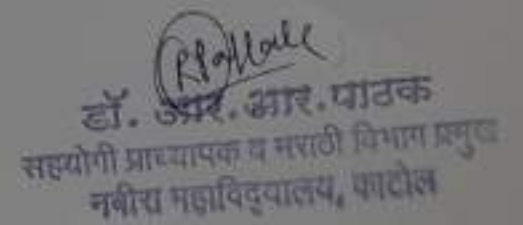 डॉ. आर. आर. पाठक
सहयोगी प्राध्यापक व मराठी विभाग प्रमुख
नबीरा महाविद्यालय, काटोल